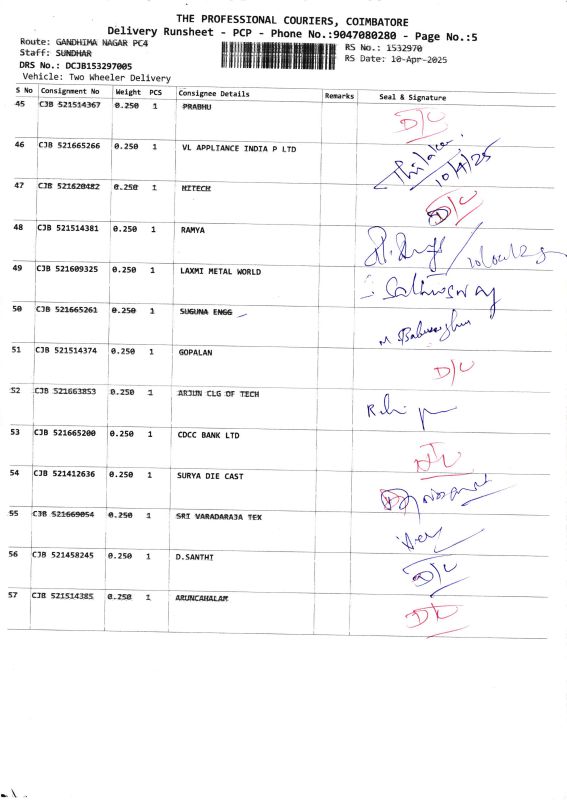 THE PROFESSIONAL COURIERS, COIMBATORE
Delivery Runsheet - PCP - Phone No.:9047080280 - Page No.:5
Route: GANDHIMA NAGAR PC4
RS No.: 1532970
Staff: SUNDHAR
RS Date: 10-Apr-2025
DRS No.: DCJB153297005
Vehicle: Two Wheeler Delivery
S No Consignment No Weight PCS Consignee Details Remarks Seal & Signature
45 CJB 521514367 0.250 1 PRABHU D/C
46 CJB 521665266 0.250 1 VL APPLIANCE INDIA P LTD 10/4/25
47 CJB 521620482 0.250 1 HITECH D/C
48 CJB 521514381 0.250 1 RAMYA
49 CJB 521609325 0.250 1 LAXMI METAL WORLD
50 CJB 521665261 0.250 1 SUGUNA ENGG
51 CJB 521514374 0.250 1 GOPALAN D/C
52 CJB 521663853 0.250 1 ARJUN CLG OF TECH
53 CJB 521665200 0.250 1 CDCC BANK LTD
54 CJB 521412636 0.250 1 SURYA DIE CAST
55 CJB 521669054 0.250 1 SRI VARADARAJA TEX
56 CJB 521458245 0.250 1 D.SANTHI D/C
57 CJB 521514385 0.250 1 ARUNCAHALAM D/C